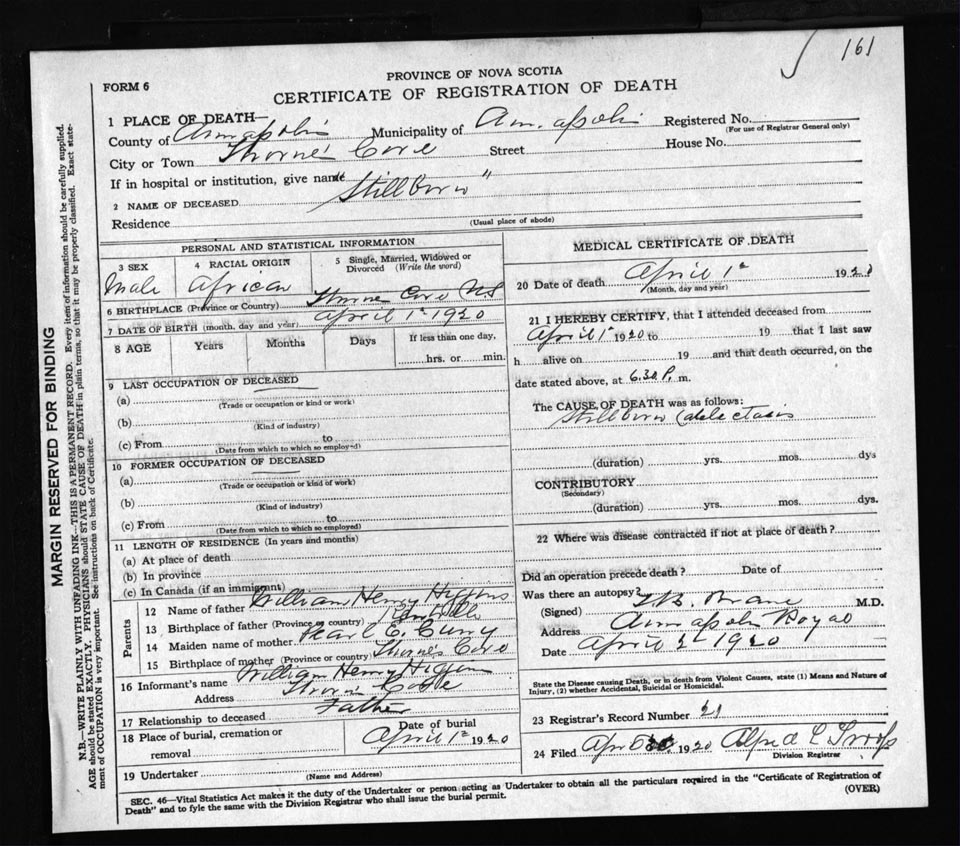 161
FORM 6
PROVINCE OF NOVA SCOTIA
CERTIFICATE OF REGISTRATION OF DEATH
1 PLACE OF DEATH—
County of Annapolis Municipality of Annapolis Registered No.
(For use of Registrar General only)
City or Town Thorne's Cove Street House No.
If in hospital or institution, give name
2 NAME OF DECEASED "Stillborn"
Residence
(Usual place of abode)
PERSONAL AND STATISTICAL INFORMATION
3 SEX
Male
4 RACIAL ORIGIN
African
5 Single, Married, Widowed or
Divorced (Write the word)
6 BIRTHPLACE (Province or Country) Thorne Cove NS
7 DATE OF BIRTH (month, day and year) April 1st 1920
8 AGE Years Months Days If less than one day,
hrs. or min.
9 LAST OCCUPATION OF DECEASED
(a)
(Trade or occupation or kind or work)
(b)
(Kind of industry)
(c) From to
(Date from which to which so employed)
10 FORMER OCCUPATION OF DECEASED
(a)
(Trade or occupation or kind of work)
(b)
(Kind of industry)
(c) From to
(Date from which to which so employed)
11 LENGTH OF RESIDENCE (In years and months)
(a) At place of death
(b) In province
(c) In Canada (if an immigrant)
Parents
12 Name of father William Henry Higgins
13 Birthplace of father (Province or country)
14 Maiden name of mother Pearl C. Curry
15 Birthplace of mother (Province or country) Thorne's Cove
16 Informant's name William Henry Higgins
Address Thorn's Cove
17 Relationship to deceased Father
18 Place of burial, cremation or
removal
Date of burial
April 1st 1920
19 Undertaker
(Name and Address)
MEDICAL CERTIFICATE OF DEATH
20 Date of death April 1st 192
(Month, day and year)
21 I HEREBY CERTIFY, that I attended deceased from
April 1st 1920 to 19 that I last saw
h alive on 19 and that death occurred, on the
date stated above, at 6.30 P. m.
The CAUSE OF DEATH was as follows:
Stillborn
(duration) yrs. mos. dys
CONTRIBUTORY
(Secondary)
(duration) yrs. mos. dys.
22 Where was disease contracted if not at place of death?
Did an operation precede death? Date of
Was there an autopsy?
(Signed) M.D.
Address Annapolis Royal
Date April 2 1920
State the Disease causing Death, or in death from Violent Causes, state (1) Means and Nature of
Injury, (2) whether Accidental, Suicidal or Homicidal.
23 Registrar's Record Number 21
24 Filed Apr 5 1920 Alfred L Troop
Division Registrar
SEC. 46—Vital Statistics Act makes it the duty of the Undertaker or person acting as Undertaker to obtain all the particulars required in the "Certificate of Registration of
Death" and to fyle the same with the Division Registrar who shall issue the burial permit.
(OVER)
MARGIN RESERVED FOR BINDING
N.B.—WRITE PLAINLY WITH UNFADING INK—THIS IS A PERMANENT RECORD. Every item of information should be carefully supplied.
AGE should be stated EXACTLY. PHYSICIANS should STATE CAUSE OF DEATH in plain terms, so that it may be properly classified. Exact state-
ment of OCCUPATION is very important. See instructions on back of Certificate.